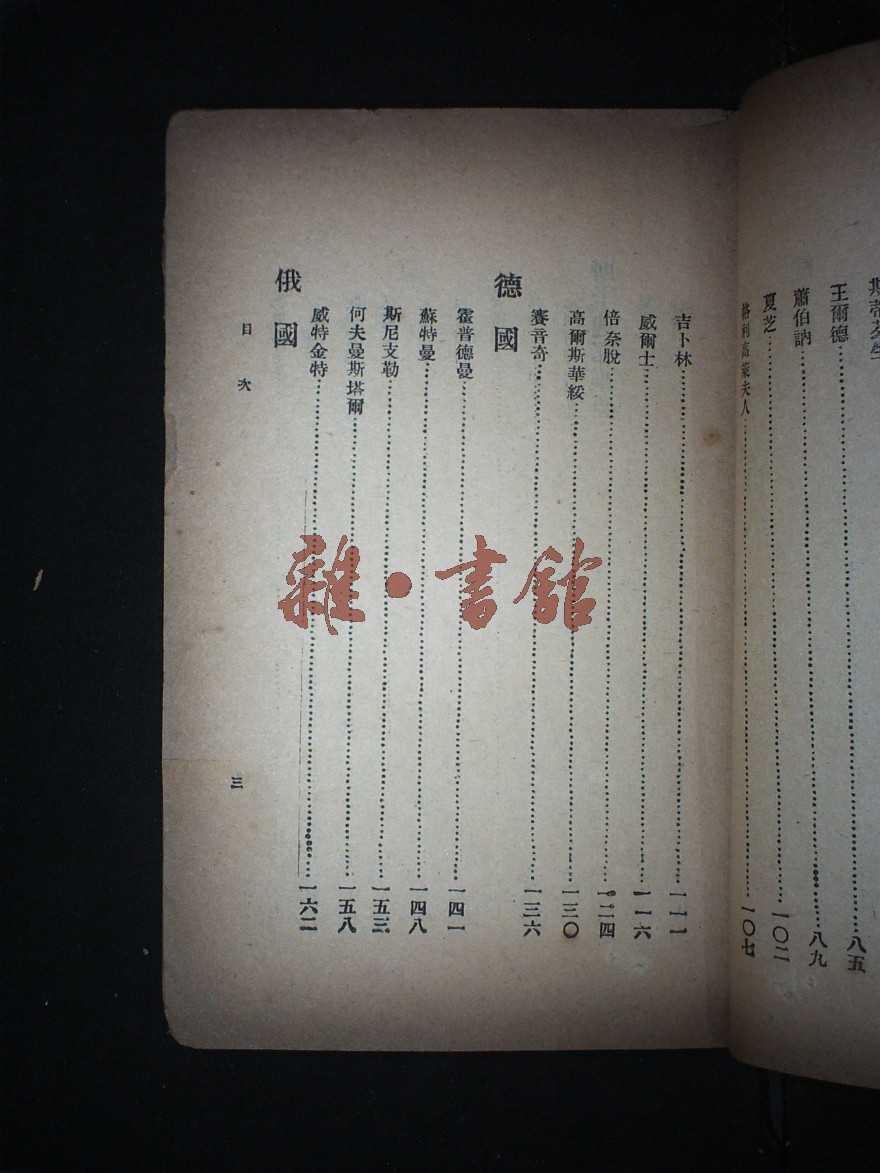 斯蒂芬生
王爾德……八五
蕭伯訥……八九
夏芝……一〇二
格利高萊夫人……一〇七
吉卜林……一一一
威爾士……一一六
倍奈脫……一二四
高爾斯華綏……一三〇
賽音奇……一三六
德國
霍普德曼……一四一
蘇特曼……一四八
斯尼支勒……一五三
何夫曼斯塔爾……一五八
威特金特……一六二
俄國
目次
三
雜·書館